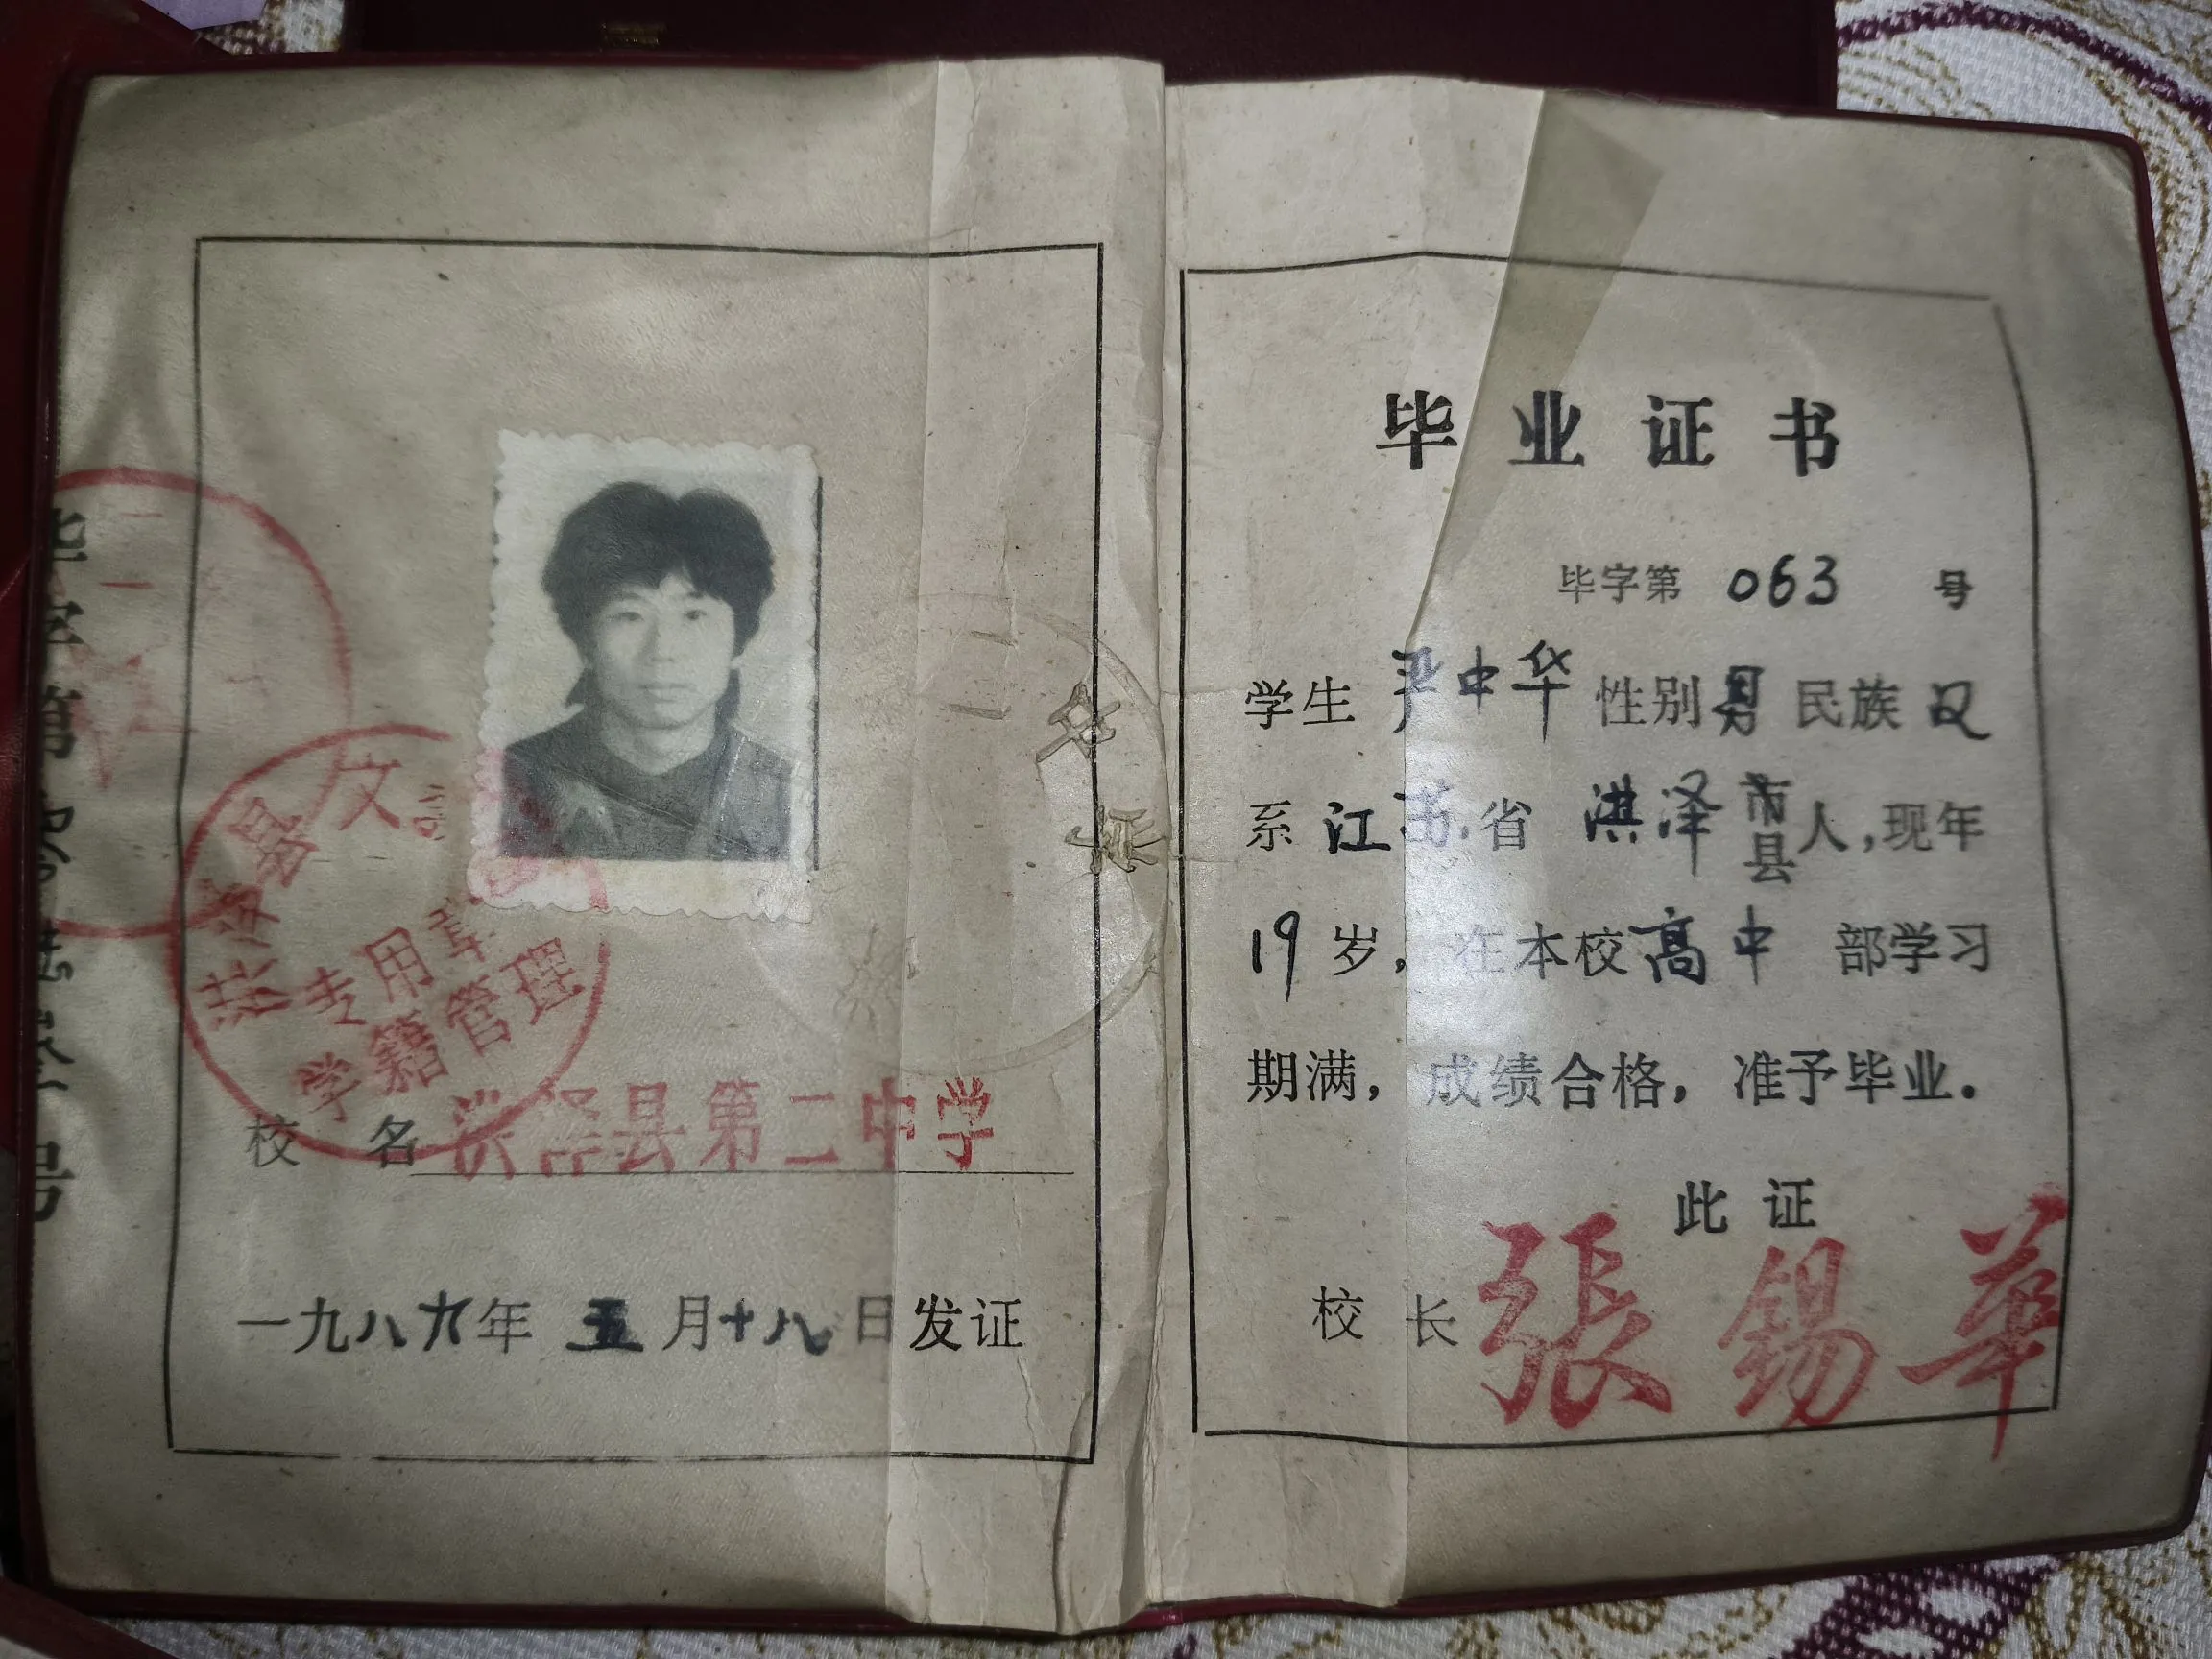 洪泽县文
专用章
学籍管理
校 名 洪泽县第二中学
一九八九年 五 月十八日发证
毕业证书
毕字第 063 号
学生 严中华 性别 男 民族 汉
系 江苏 省 洪泽 市县 人,现年
19 岁, 在本校 高中 部学习
期满, 成绩合格, 准予毕业.
此证
校 长 張錫華